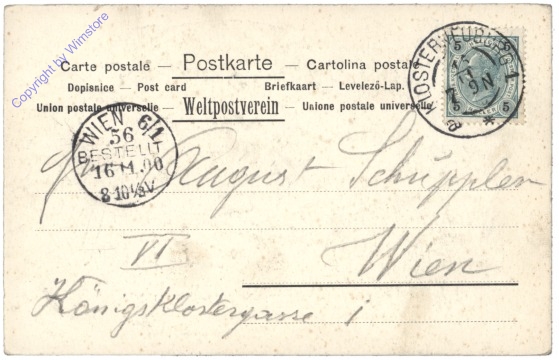 Copyright by Wimstore
Carte postale — Postkarte — Cartolina postale
Dopisnice — Post card Briefkaart — Levelező-Lap.
Union postale universelle — Weltpostverein — Unione postale universelle
KLOSTERNEUBURG 1
9 N
5 5
5 5
WIEN 6/1
56
BESTELLT
8-10½V
August Schuppler
VI Wien
Königsklostergasse 1